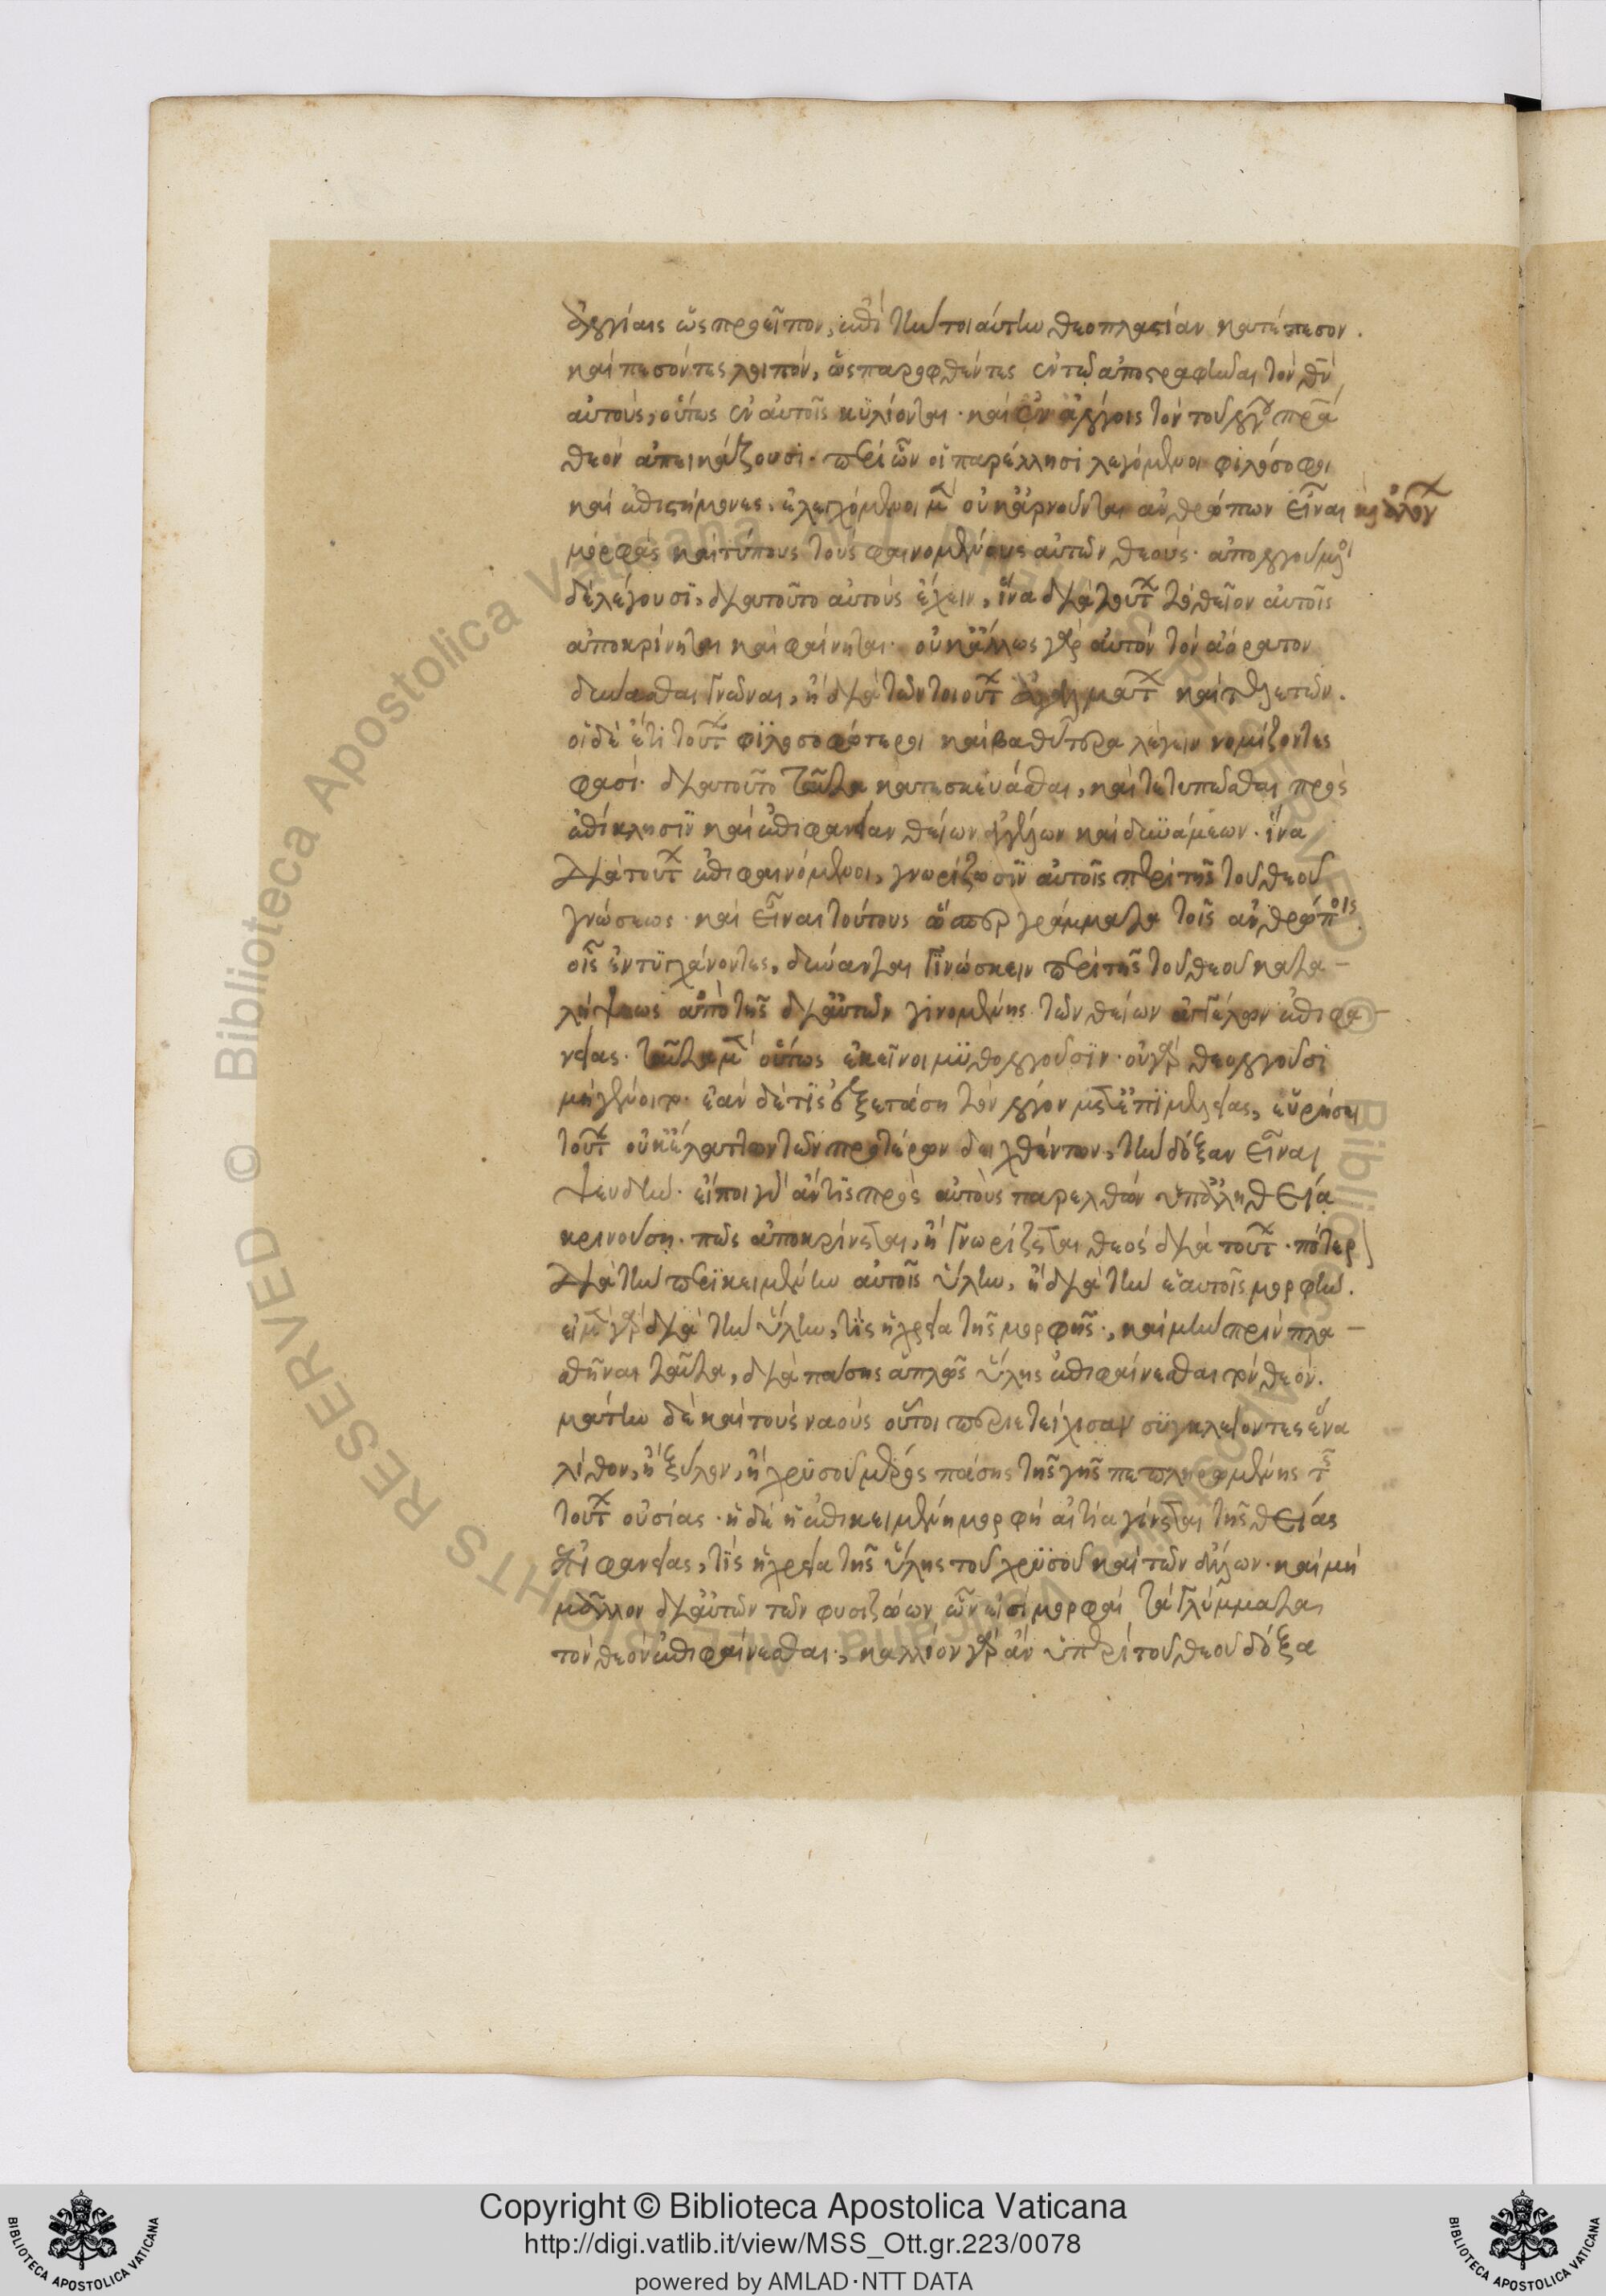 ἀλογίαις ὡς προεῖπον, ἐπὶ τὴν τοιαύτην θεοπλαστίαν κατέπεσον.
καὶ πεσόντες λοιπὸν, ὡς παροφθέντες ἐν τῷ ἀποστραφῆναι τὸν θν
αὐτοὺς, οὕτως ἐν αὐτοῖς κυλίονται. καὶ ἐν ἀλόγοις τὸν τοῦ λόγου πρα
θεὸν ἀπεικάζουσι. περὶ ὧν οἱ παρ' ἕλλησι λεγόμενοι φιλόσοφοι
καὶ ἐπιστήμονες, ἐλεγχόμενοι μὲν οὐκ ἀρνοῦνται ἀνθρώπων εἶναι καὶ ἀλόγων
μορφὰς καὶ τύπους τοὺς φαινομένους αὐτῶν θεούς. ἀπολογούμενοι
δὲ λέγουσι, διὰ τοῦτο αὐτοὺς ἔχειν, ἵνα διὰ τούτων τὸ θεῖον αὐτοῖς
ἀποκρίνηται καὶ φαίνηται. οὐκ ἄλλως γὰρ αὐτὸν τὸν ἀόρατον
δύνασθαι γνῶναι, ἢ διὰ τῶν τοιούτων ἀγαλμάτων καὶ τελετῶν.
οἱ δὲ ἔτι τούτων φιλοσοφώτεροι καὶ βαθύτερα λέγειν νομίζοντες
φασί. διὰ τοῦτο ταῦτα κατεσκευάσθαι, καὶ τετυπῶσθαι πρὸς
ἐπίκλησιν καὶ ἐπιφάνειαν θείων ἀγγέλων καὶ δυνάμεων. ἵνα
διὰ τούτων ἐπιφαινόμενοι, γνωρίζωσιν αὐτοῖς περὶ τῆς τοῦ θεοῦ
γνώσεως. καὶ εἶναι τούτους ὥσπερ γράμματα τοῖς ἀνθρώποις.
οἷς ἐντυγχάνοντες, δύνανται γινώσκειν περὶ τῆς τοῦ θεοῦ κατα-
λήψεως ἀπὸ τῆς δι' αὐτῶν γινομένης τῶν θείων ἀγγέλων ἐπιφα-
νείας. ταῦτα μὲν οὕτως ἐκεῖνοι μυθολογοῦσιν. οὐ γὰρ θεολογοῦσι
μὴ γένοιτο. ἐὰν δέ τις ἐξετάσῃ τὸν λόγον μετ' ἐπιμελείας, εὑρήσει
τούτων οὐκ ἔλαττον τῶν προτέρων δειχθέντων, τὴν δόξαν εἶναι
ψευδῆ. εἴποι γὰρ ἄν τις πρὸς αὐτοὺς παρελθὼν ὑπ' ἀληθείᾳ
κρινούσῃ. πῶς ἀποκρίνεται, ἢ γνωρίζεται θεὸς διὰ τούτων. πότερον
διὰ τὴν περικειμένην αὐτοῖς ὕλην, ἢ διὰ τὴν ἐν αὐτοῖς μορφήν.
εἰ μὲν γὰρ διὰ τὴν ὕλην, τίς ἡ χρεία τῆς μορφῆς, καὶ μὴ πρὶν πλα-
σθῆναι ταῦτα, διὰ πάσης ἁπλῶς ὕλης ἐπιφαίνεσθαι τὸν θεόν.
μάτην δὲ καὶ τοὺς ναοὺς οὗτοι περιετείχισαν συγκλείοντες ἕνα
λίθον, ἢ ξύλον, ἢ χρυσοῦ μέρος πάσης τῆς γῆς πεπληρωμένης τῆς
τούτων οὐσίας. ἡ δὲ ἡ ἐπικειμένη μορφὴ αἰτία γίνεται τῆς θείας
ἐπιφανείας, τίς ἡ χρεία τῆς ὕλης τοῦ χρυσοῦ καὶ τῶν ἄλλων. καὶ μὴ
μᾶλλον δι' αὐτῶν τῶν φύσει ζώων ὧν εἰσὶ μορφαὶ τὰ γλύμματα,
τὸν θεὸν ἐπιφαίνεσθαι, καλλίον γὰρ ἂν ἡ περὶ τοῦ θεοῦ δόξα
Copyright © Biblioteca Apostolica Vaticana
http://digi.vatlib.it/view/MSS_Ott.gr.223/0078
powered by AMLAD·NTT DATA